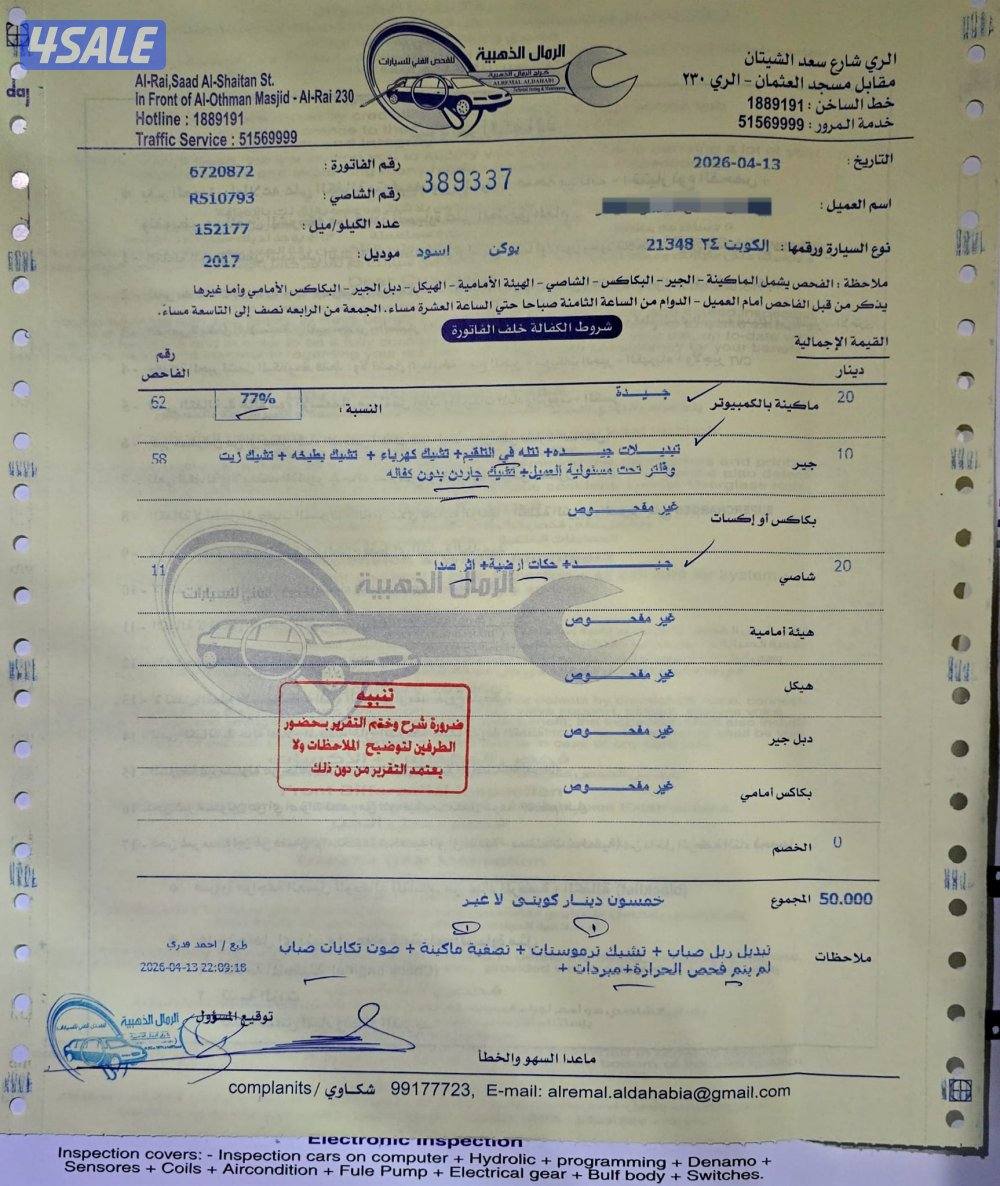 4SALE
Al-Rai,Saad Al-Shaitan St.
In Front of Al-Othman Masjid - Al-Rai 230
Hotline : 1889191
Traffic Service : 51569999
الرمال الذهبية
للفحص الفني للسيارات
كراج الرمال الذهبية
ALREMAL ALDAHABI
الري شارع سعد الشيتان
مقابل مسجد العثمان - الري ٢٣٠
خط الساخن : 1889191
خدمة المرور : 51569999
التاريخ : 2026-04-13
389337
رقم الفاتورة : 6720872
اسم العميل :
رقم الشاصي : R510793
عدد الكيلو/ميل : 152177
نوع السيارة ورقمها : الكويت ٢٤ 21348 يوكن اسود
موديل : 2017
ملاحظة : الفحص يشمل الماكينة - الجير - البكاكس - الشاصي - الهيئة الأمامية - الهيكل - دبل الجير - البكاكس الأمامي وأما غيرها
يذكر من قبل الفاحص أمام العميل - الدوام من الساعة الثامنة صباحا حتي الساعة العشرة مساء. الجمعة من الرابعه نصف إلى التاسعة مساء.
شروط الكفالة خلف الفاتورة
القيمة الإجمالية
دينار
رقم
الفاحص
20 ماكينة بالكمبيوتر جيدة النسبة : 77% 62
10 جير تبديلات جيده+ نتله في التلقيم+ تشيك كهرباء + تشيك بطيخه + تشيك زيت 58
وفلتر تحت مسئولية العميل+ تشيك جاردن بدون كفاله
بكاكس أو إكسات غير مفحوص
20 شاصي جيد+ حكات ارضية+ اثر صدا 11
هيئة أمامية غير مفحوص
هيكل غير مفحوص
دبل جير غير مفحوص
بكاكس أمامي غير مفحوص
تنبيه
ضرورة شرح وختم التقرير بحضور
الطرفين لتوضيح الملاحظات ولا
يعتمد التقرير من دون ذلك
0 الخصم
50.000 المجموع خمسون دينار كويتي لا غير
ملاحظات تبديل ربل صباب + تشيك ترموستات + تصفية ماكينة + صوت تكايات صباب
لم يتم فحص الحرارة+ مبردات +
طبع / احمد قدري
2026-04-13 22:09:18
توقيع المسؤول
الرمال الذهبية
ماعدا السهو والخطأ
complanits / شكاوي 99177723, E-mail: alremal.aldahabia@gmail.com
Electronic Inspection
Inspection covers: - Inspection cars on computer + Hydrolic + programming + Denamo +
Sensores + Coils + Aircondition + Fule Pump + Electrical gear + Bulf body + Switches.